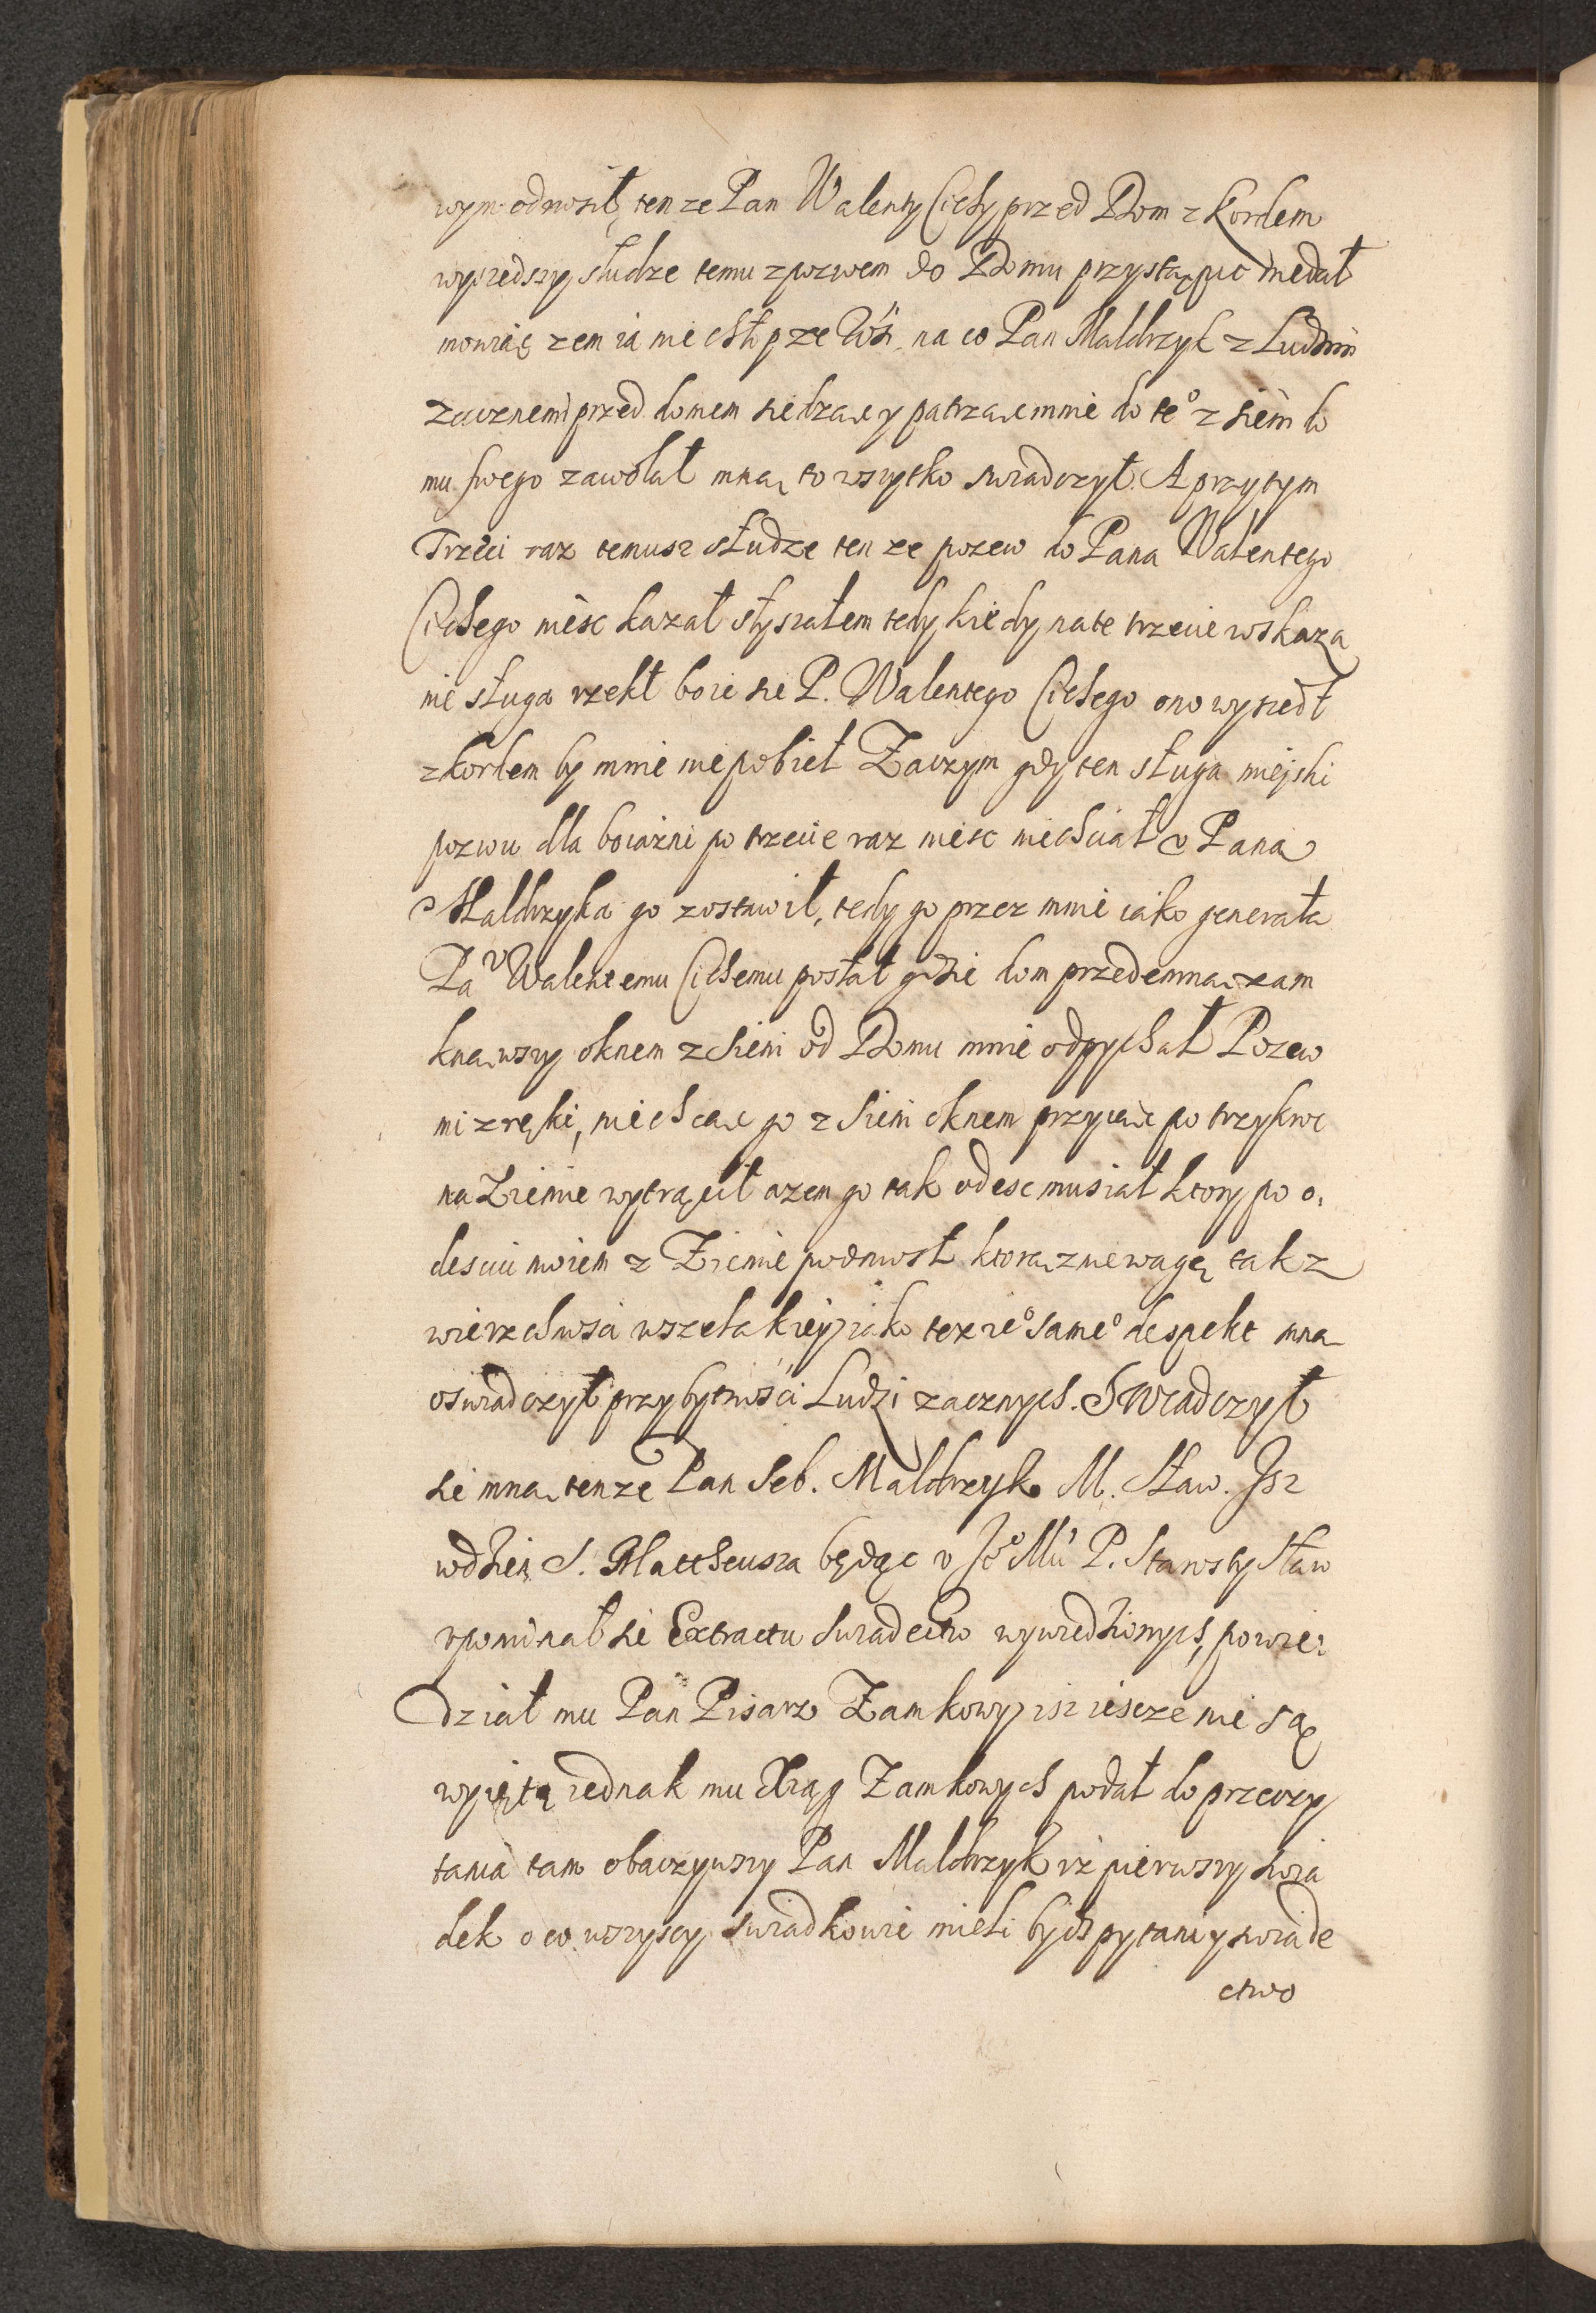 wym odnosił, tenze Pan Walenty Cichy przed Dom z kordem
wyszedszy słudze temu z pozwem do Domu przystąpic niedał
mowiąc zem ia nie chłop ze Wśi, na co Pan Maldrzyk z Ludzmi
zacznemi przed domem siedzący patrzac mnie do te° z sieni do
mu swego zawołał mną to wszytko swiadczył. A przytym
Trzeci raz temusz słudze ten ze pozew do Pana Walentego
Cichego niesc kazał słyszałem tedy kiedy na te trzecie wskaza
nie sługa rzekł boie sie P. Walentego Cichego ono wyszedł
z kordem by mnie niepobieł Zaczym gdy ten sługa miejski
pozwu dla boiazni po trzecie raz niesc niechciał v Pana
Maldrzyka go zostawił, tedy go przez mnie iako generała
Pa^v Walentemu Cichemu posłał gdzie dom przedemną zam
knąwszy oknem z sieni od Domu mnie odpychał Pozew
mi z ręki, niechcąc go z sieni oknem przyiąc po trzykroc
na Ziemie wytrącił azem go tak odesc musiał ktory po o,
desciu moiem z Ziemie podniosł ktorą zniewagę tak z
wierzchnosci wszelakiey iako tez ie° same° despekt mną
oswiadczył przy bytnosci Ludzi zacznych. Swiadczył
sie mną tenze Pan Seb. Maldrzyk M. Staw. Isz
wdzien S. Mattheusza będąc v Je° Mu P. Starosty Staw
vpominał sie Extractu swiadectw wywiedzionych, powie,
dział mu Pan Pisarz Zamkowy isz iescze nie są
wyięta iednak mu Xiąg Zamkowych podał do przeczy
tania tam obaczywszy Pan Maldrzyk iż pierwszy swia
dek o co wszyscy swiadkowie mieli bydz pytani y swiade
ctwo